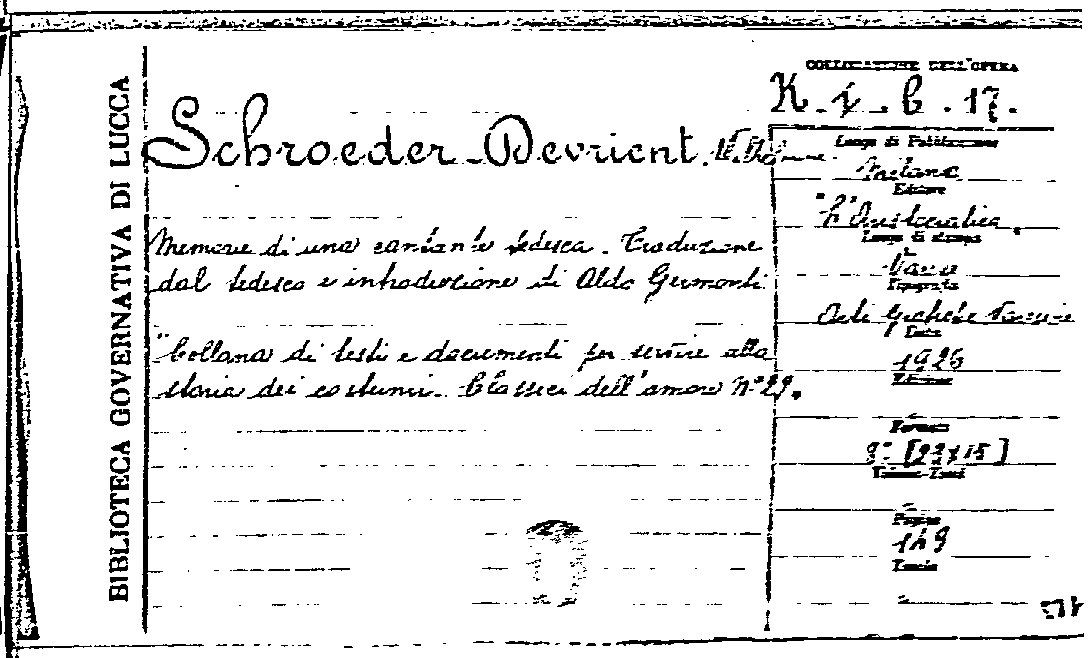 BIBLIOTECA GOVERNATIVA DI LUCCA
COLLOCAZIONE DELL'OPERA
K. 1. b. 17.
Schroeder-Devrient.
Luogo di Pubblicazione
Milano
Editore
"L'Aristocratica"
Luogo di stampa
Tipografia
Arti Grafiche
1926
Edizione
Formato
8° [23x15]
Pagine
149
Memorie di una cantante tedesca. Traduzione
dal tedesco e introduzione di Aldo
"Collana di testi e documenti per servire alla
storia dei costumi. Classici dell'amore N° 29.